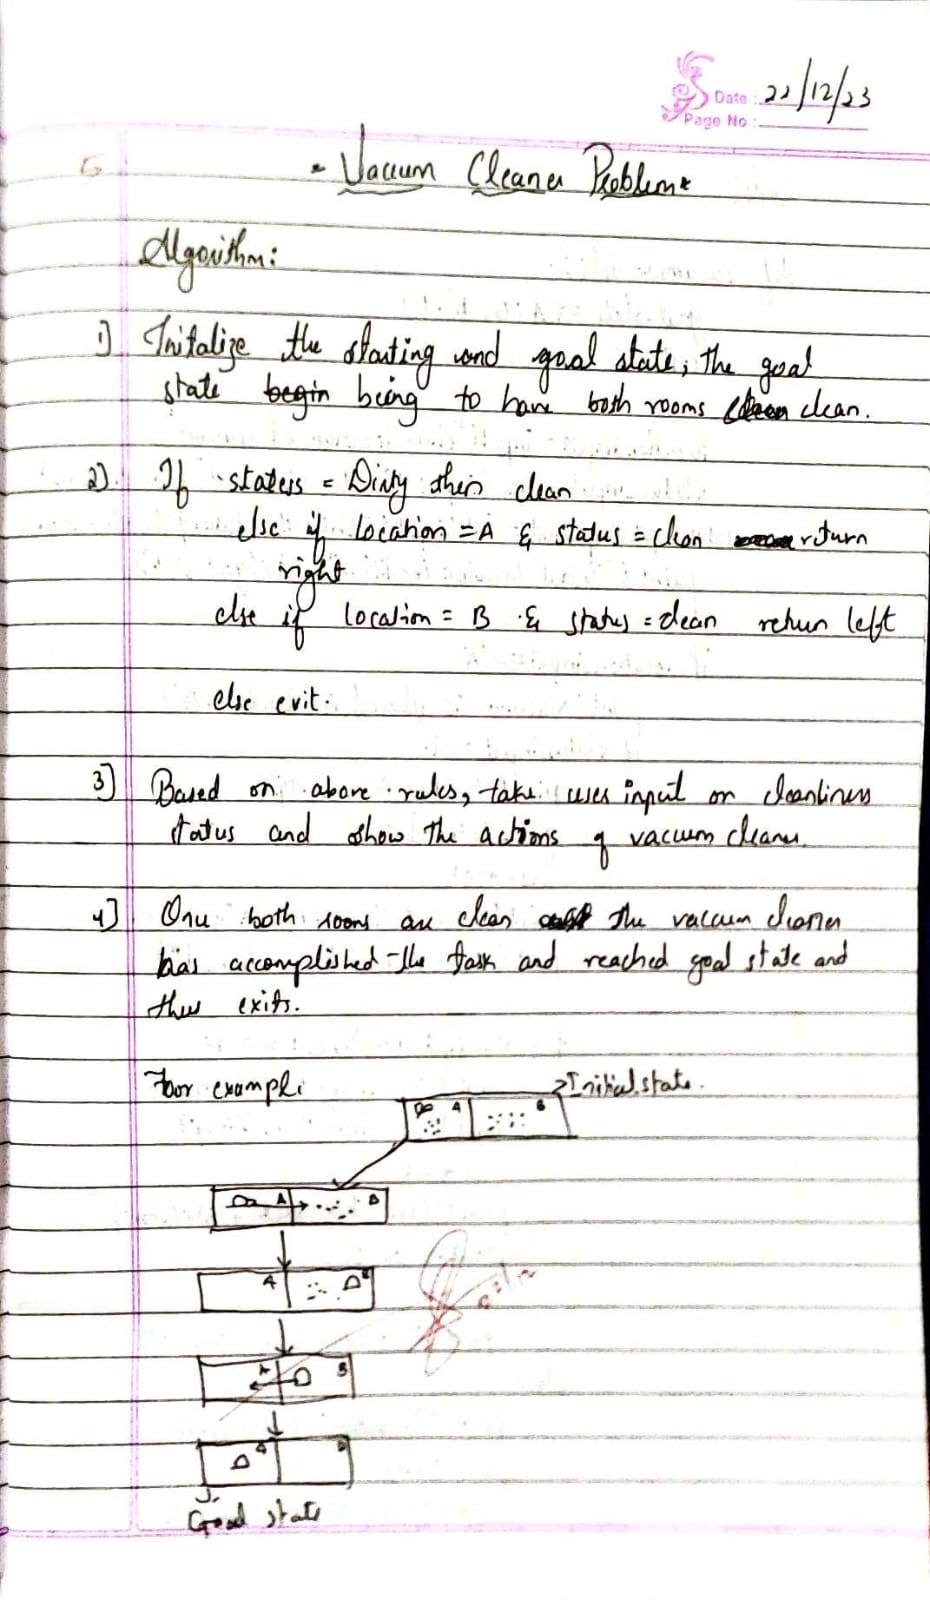 Date: 22/12/23
Page No:
* Vacuum Cleaner Problem *
Algorithm:
1) Initalize the starting and goal state; the goal
state begin being to have both rooms clean clean.
2) If status = Dirty then clean
else if location = A & status = clean return
right
else if location = B & status = clean return left
else exit.
3] Based on above rules, take user input on cleanliness
status and show the actions of vacuum cleaner.
4] Once both rooms are clean the vacuum cleaner
has accomplished the task and reached goal state and
thus exits.
For example:
Initial state.
A B
A B
A B
A B
A B
Goal state